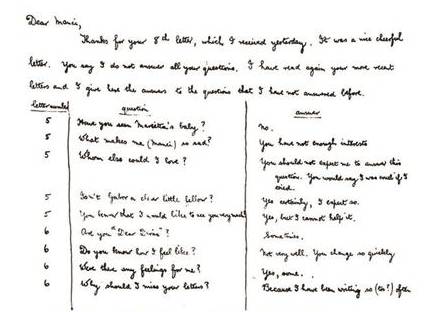 Dear Manci,
Thanks for your 8th letter, which I received yesterday. It was a nice cheerful
letter. You say I do not answer all your questions. I have read again your more recent
letters and I give here the answers to the questions that I have not answered before.
letter number question answer
5 Have you seen Marietta's baby? No.
5 What makes me (Manci) so sad? You have not enough interests
5 Whom else could I love? You should not expect me to answer this
question. You would say I was cruel if I
tried.
5 Isn't Gabor a clear little fellow? Yes certainly, I expect so.
5 You know that I would like to see you very much? Yes, but I cannot help it.
6 Are you "Dear Dirac"? Sometimes.
6 Do you know how I feel like? Not very well. You change so quickly
6 Were there any feelings for me? Yes, some.
6 Why should I miss your letters? Because I have been writing so (to?) often